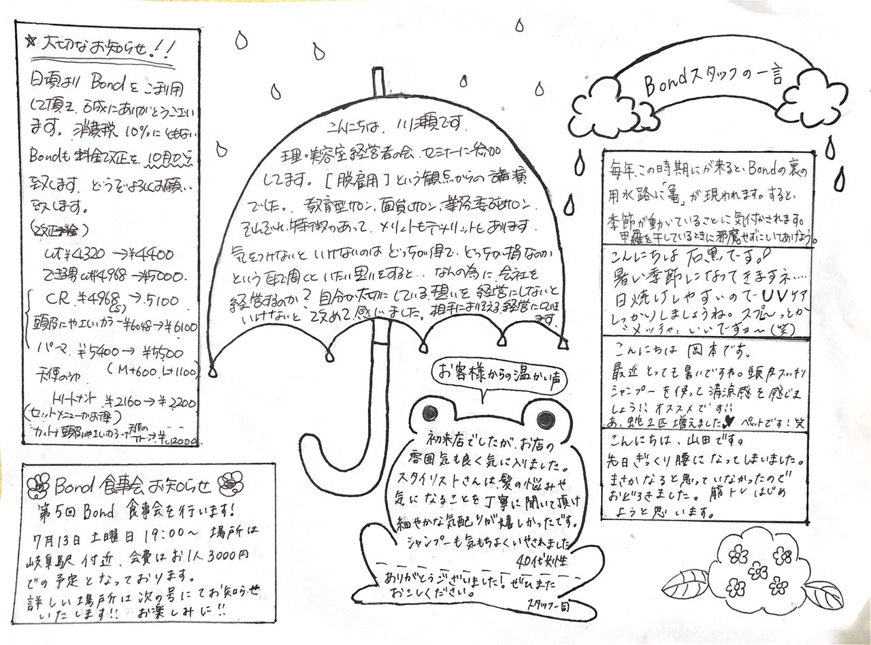 ★大切なお知らせ!!
日頃より Bondをご利用
して頂き、誠にありがとうござい
ます。消費税10%にともない
Bondも料金改正を10月から
致します。どうぞよろしくお願い
致します。
(改正料金)
cut ¥4320 → ¥4400
cut ¥4968 → ¥5000
CR ¥4968 → 5100
頭皮にやさしいカラー ¥6048 → ¥6100
パーマ ¥5400 → ¥5500
天使の (M+600. L+1100)
トリートメント ¥2160 → ¥2200
(セットメニューがお得)
カット+頭皮にやさしいカラー+ ¥12000
Bond 食事会 お知らせ
第5回 Bond 食事会を行います!
7月13日 土曜日 19:00〜 場所は
岐阜駅 付近、会費はお1人3000円
での予定となっております。
詳しい場所は次の号にてお知らせ
いたします!! お楽しみに!!
こんにちは、川瀬です。
理・美容室経営者の会、セミナーに参加
してます。[脱雇用]という観点からの講演
でした。教育型サロン、面貸しサロン、業務委託サロン、
それぞれ特徴があって、メリットもデメリットもあります。
気をつけないといけないのはどっちが得で、どっちが損なのか
という
経営するのか?自分が大切にしている想いを経営にしないと
いけないと改めて感じました。
お客様からの温かい声
初来店でしたが、お店の
雰囲気も良く気に入りました。
スタイリストさんは、髪の悩みや
気になることを丁寧に聞いて頂け
細やかな気配りが嬉しかったです。
シャンプーも気もちよくいやされました
40代女性
ありがとうございました!ぜひまた
おこしください。
スタッフ一同
Bondスタッフの一言
毎年、この時期にが来ると、Bondの裏の
用水路に「亀」が現われます。すると、
季節が動いていることに気付かされます。
甲羅を干しているときに邪魔せずにいてあげよう。
こんにちは 石黒です。
暑い季節になってきますネ….
日焼けしやすいのでUVケア
しっかりしましょうね。スプレーとか
メッチャいいですヨ〜(笑)
こんにちは 岡本です。
最近 とっても暑いですね。頭皮スッキリ
シャンプーを使って清涼感を感じま
しょう!! オススメです!!
あ、蛇2匹増えました♥ ペットです!笑
こんにちは、山田です。
先日ぎっくり腰になってしまいました。
まさかなると思っていなかったので
おどろきました。筋トレはじめ
ようと思います。